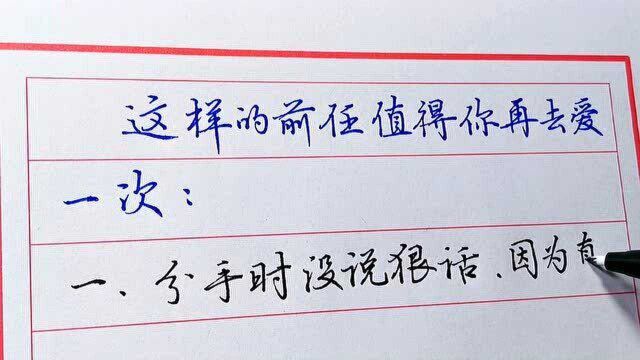 这样的前任值得你再去爱
一次：
一、分手时没说狠话、因为有